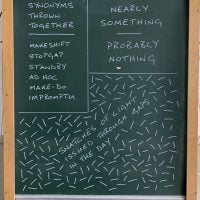 SYNONYMS
THROWN
TOGETHER
MAKESHIFT
STOPGAP
STANDBY
AD HOC
MAKE-DO
IMPROMPTU
NEARLY
SOMETHING
PROBABLY
NOTHING
SNATCHES OF LIGHT
ISSUED THROUGH GAPS
IN THE DAY